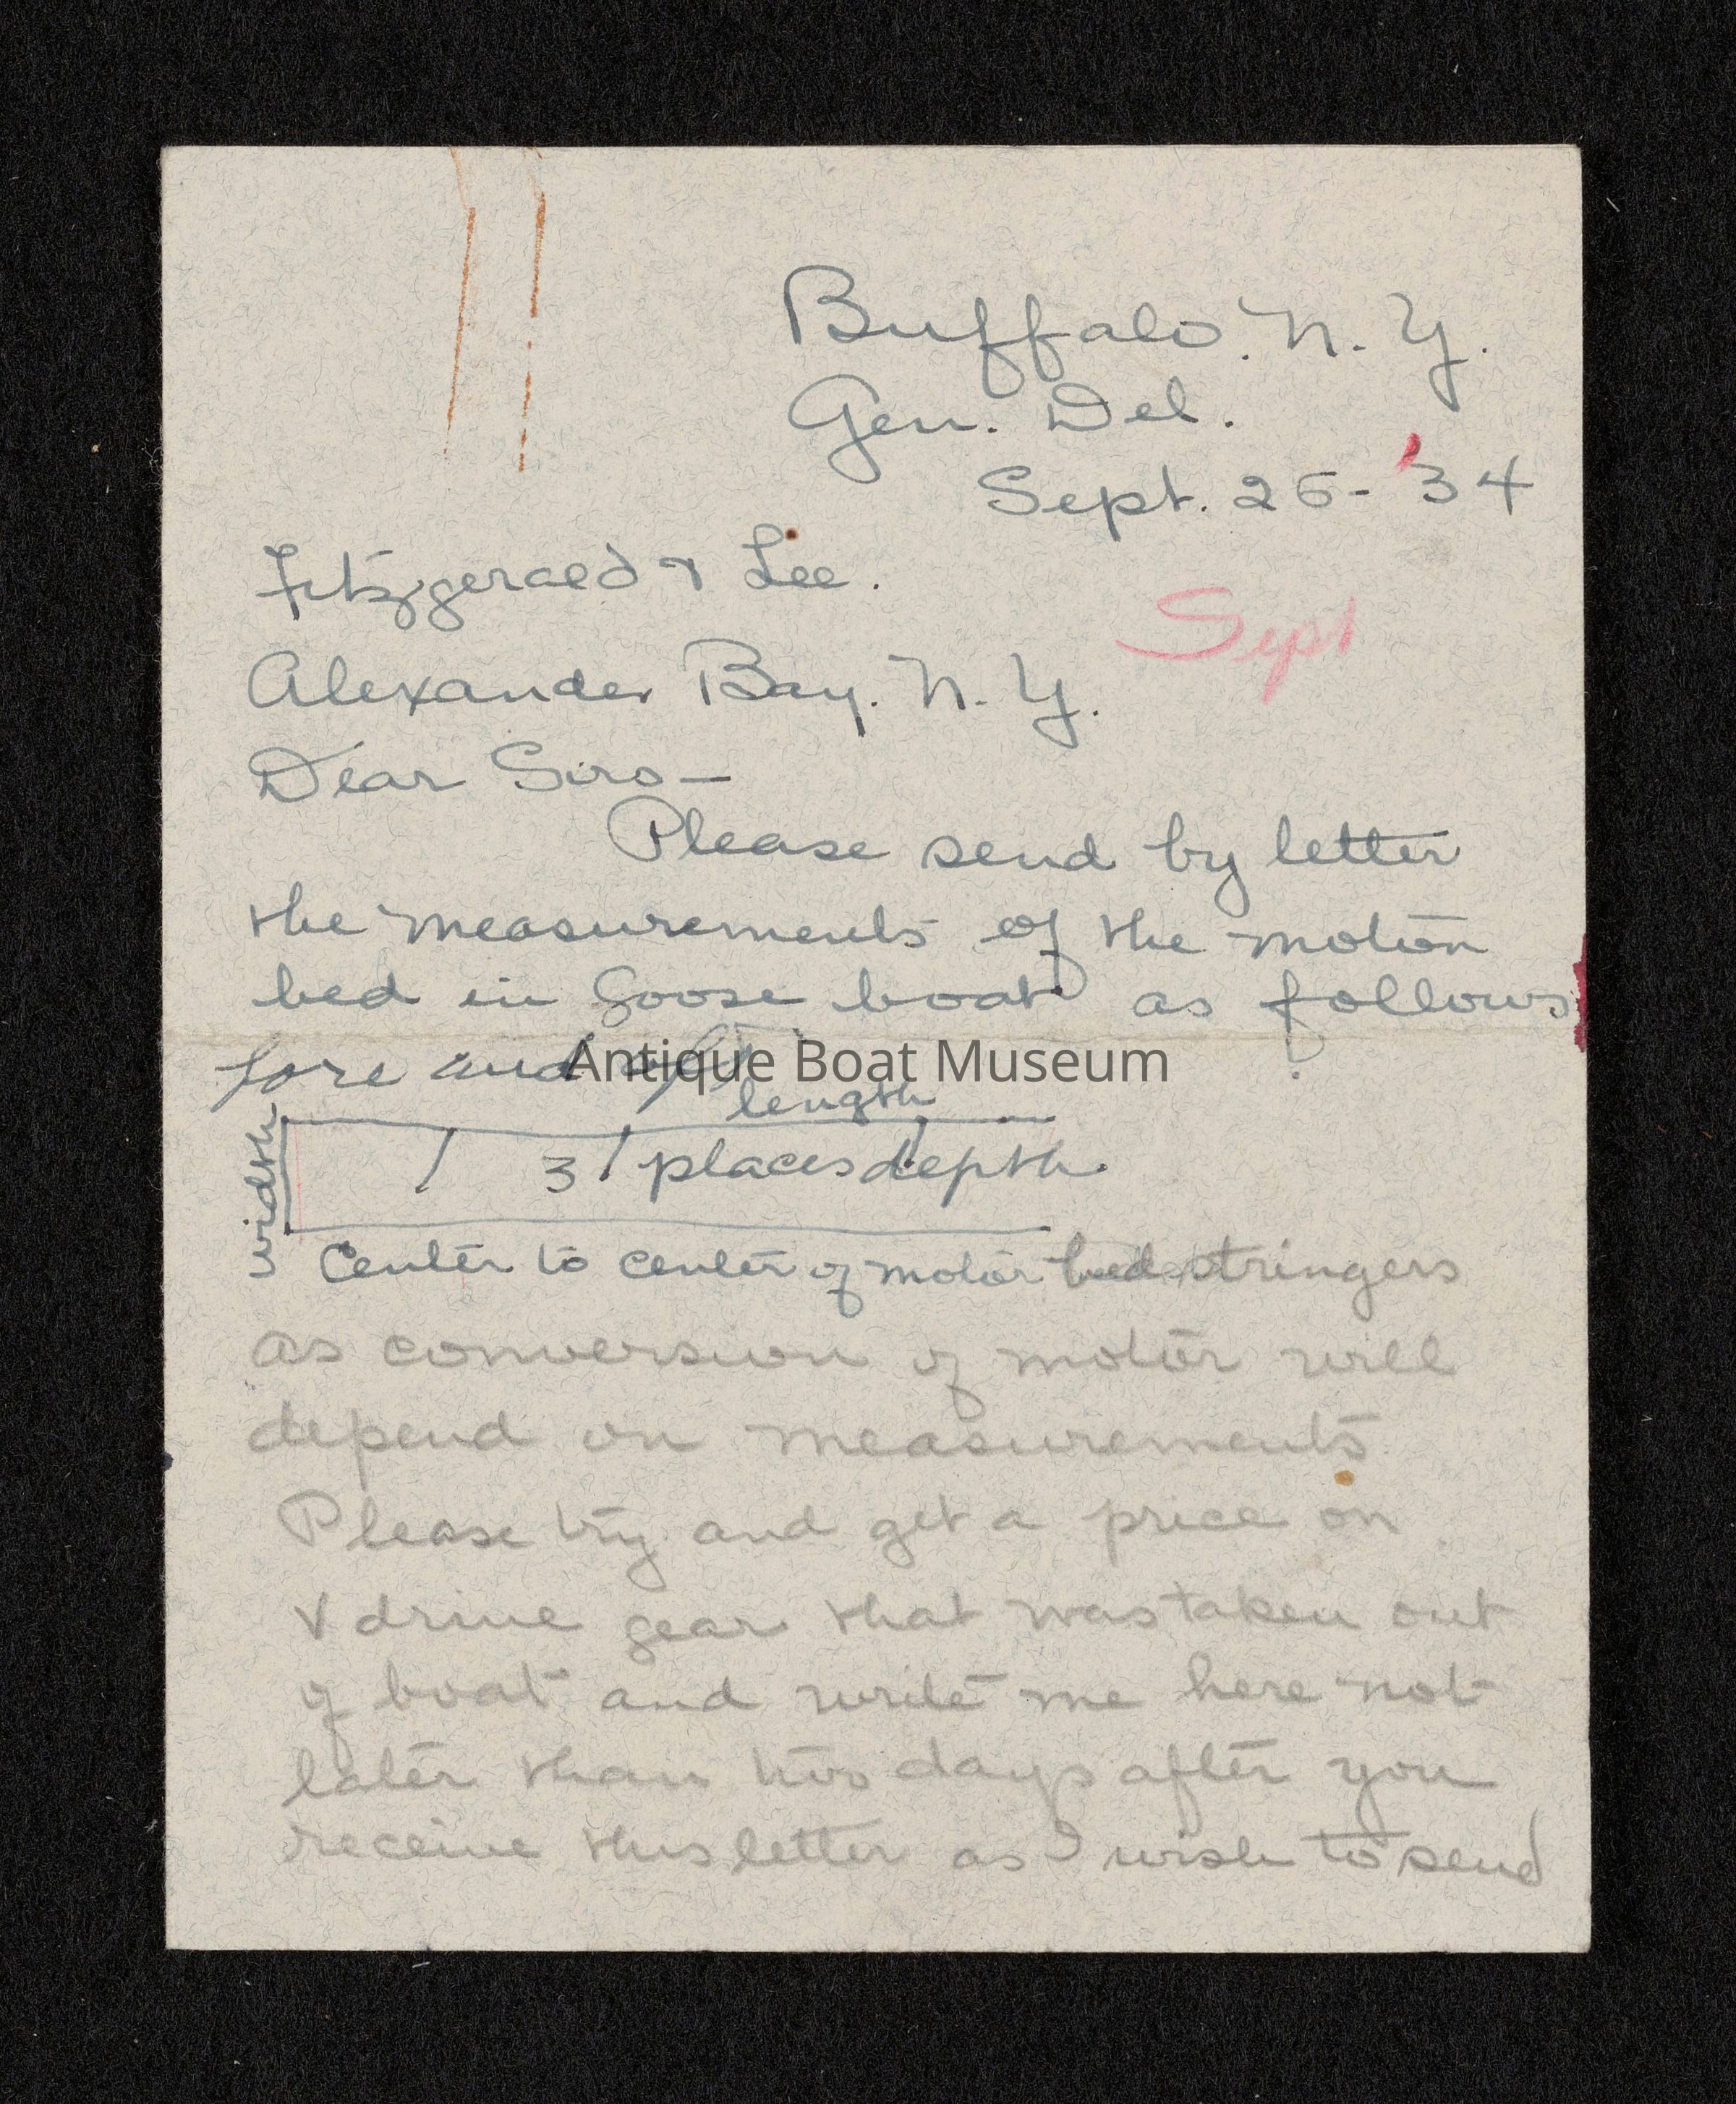 Buffalo. N. Y.
Gen. Del.
Sept. 25- '34
Fitzgerald & Lee.
Sept
Alexander Bay. N. Y.
Dear Sirs —
Please send by letter
the measurements of the motor
bed in Goose boat as follows
fore and aft
Antique Boat Museum
length
width
3 places depth.
Center to center of motor bed stringers
as conversion of motor will
depend on measurements
Please try and get a price on
V drive gear that was taken out
of boat and write me here not
later than two days after you
receive this letter as I wish to send